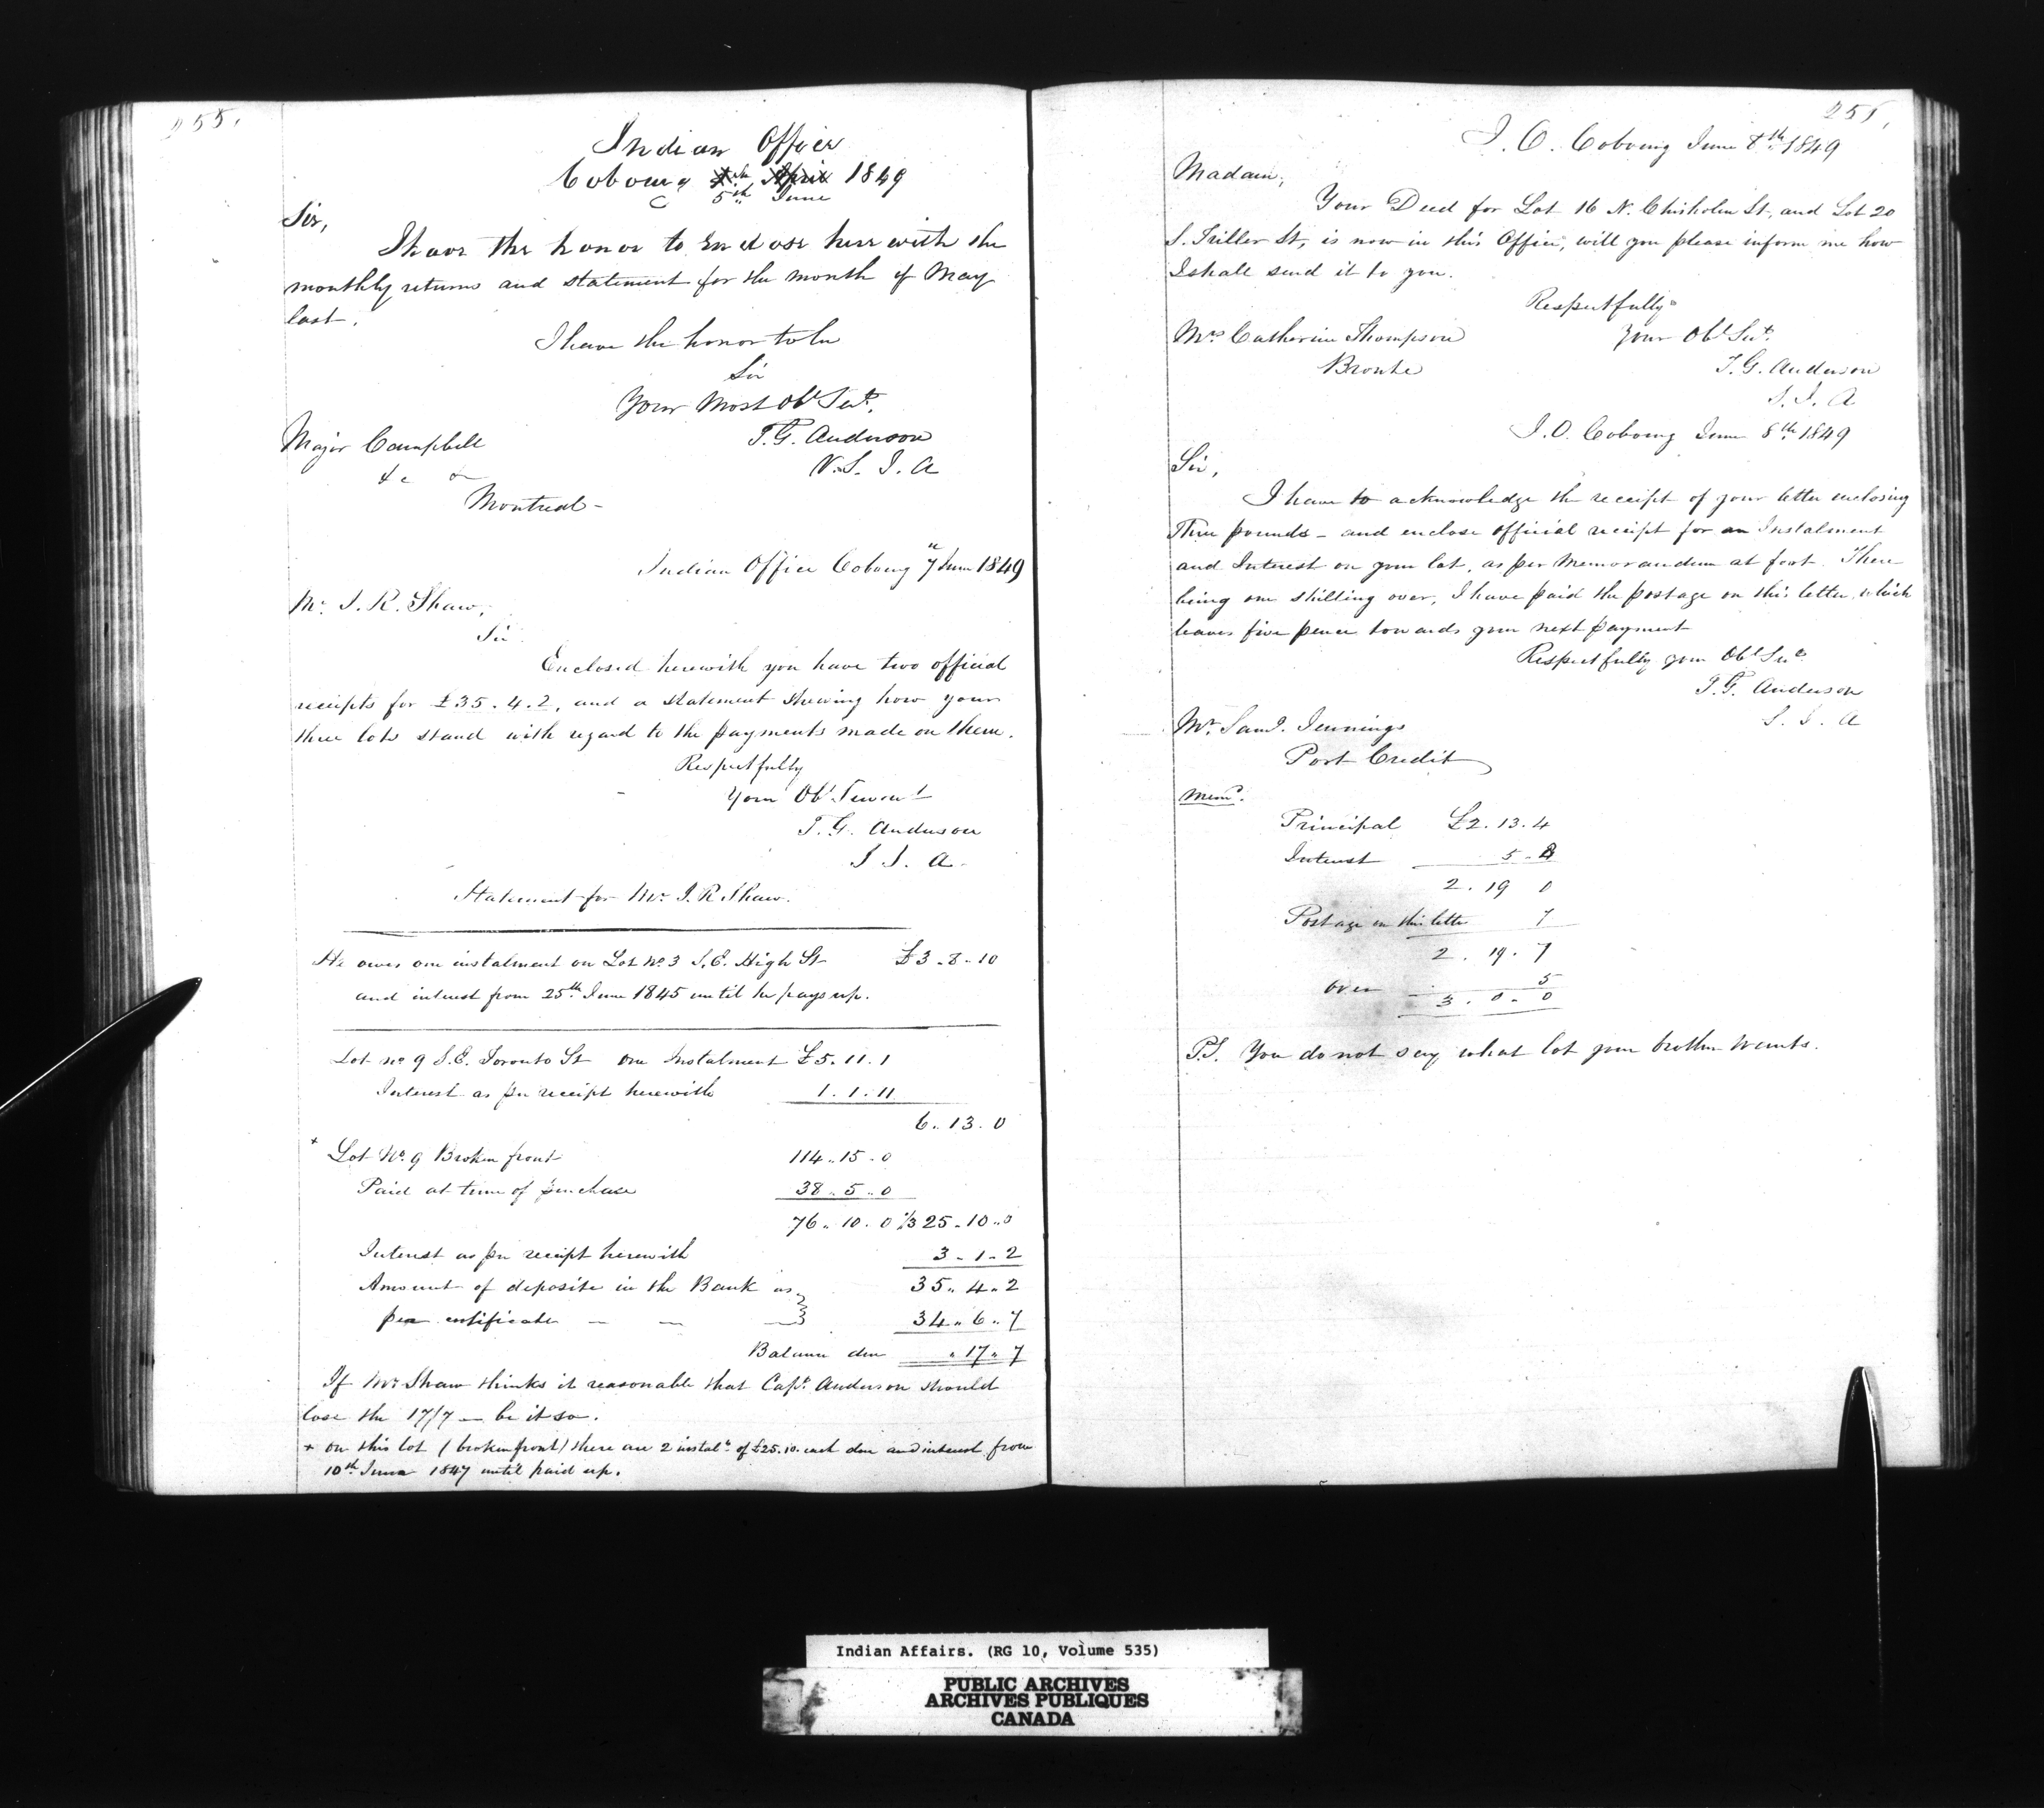 255.
Indian Office
Cobourg 4th April 1849
5th June
Sir,
I have the honor to Enclose herewith the
monthly returns and statement for the month of May
last.
I have the honor to be
Sir
Your Most Obt Servt.
T.G. Anderson
V.S. I. A
Major Campbell
&c &c
Montreal -
Indian Office Cobourg 7" June 1849
Mr. J. R. Shaw,
Sir
Enclosed herewith you have two official
receipts for £35.4.2, and a statement shewing how your
three lots stand with regard to the payments made on them.
Respectfully
Your Obt Servant
T. G. Anderson
S. I. A.
Statement for Mr. J. R Shaw.
He owes one instalment on Lot No. 3 S.E. High St £3-8-10
and interest from 25th June 1845 until he pays up.
Lot no 9 S.E. Toronto St One Instalment £5.11.1
Interest as per receipt herewith 1.1.11
6..13.0
+ Lot No. 9 Broken front 114..15.0
Paid at time of purchase 38..5..0
76..10.0 1/3 25..10..0
Interest as per receipt herewith 3-1-2
Amount of deposite in the Bank as 35..4..2
per certificate — — — 34..6..7
Balance due " 17.. 7
If Mr Shaw thinks it reasonable that Capt. Anderson should
lose the 17/7 — be it so.
+ on this lot (broken front) there are 2 instalts of £25.10. each due and interest from
10th June 1847 until paid up.
256.
I. O. Cobourg June 8th 1849
Madam,
Your Deed for Lot 16 N. Chisholm St, and Lot 20
S. Triller St, is now in this Office, will you please inform me how
I shall send it to you.
Respectfully
Your Obt Sert.
T. G. Anderson
S. I. A
Mrs Catherine Thompson
Bronte
I.O. Cobourg June 8th 1849
Sir,
I have to acknowledge the receipt of your letter enclosing
Three pounds – and enclose official receipt for an Instalment
and Interest on your lot, as per Memorandum at foot. There
being one shilling over, I have paid the postage on this letter, which
leaves five pence towards your next payment
Respectfully your Obt Sert
T. G. Anderson
S. I. A
Mr. Saml. Jennings
Port Credit
Memo.
Principal £2.13.4
Interest 5-8
2. 19 0
Postage on this letter 7
2. 19. 7
over 5
3. 0. 0
P.S. You do not say what lot your brother wants.
Indian Affairs. (RG 10, Volume 535)
PUBLIC ARCHIVES
ARCHIVES PUBLIQUES
CANADA